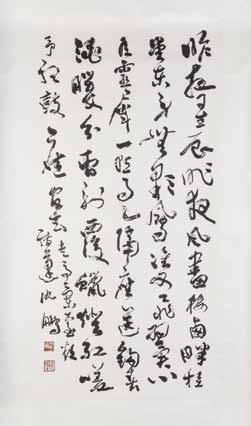 昨夜星辰昨夜風畫樓西畔桂
堂東身無彩鳳雙飛翼心
有靈犀一點通隔座送鈎春
酒暖分曹射覆蠟燈紅嗟
予聽鼓應官去走馬蘭臺類
轉蓬 沈鵬